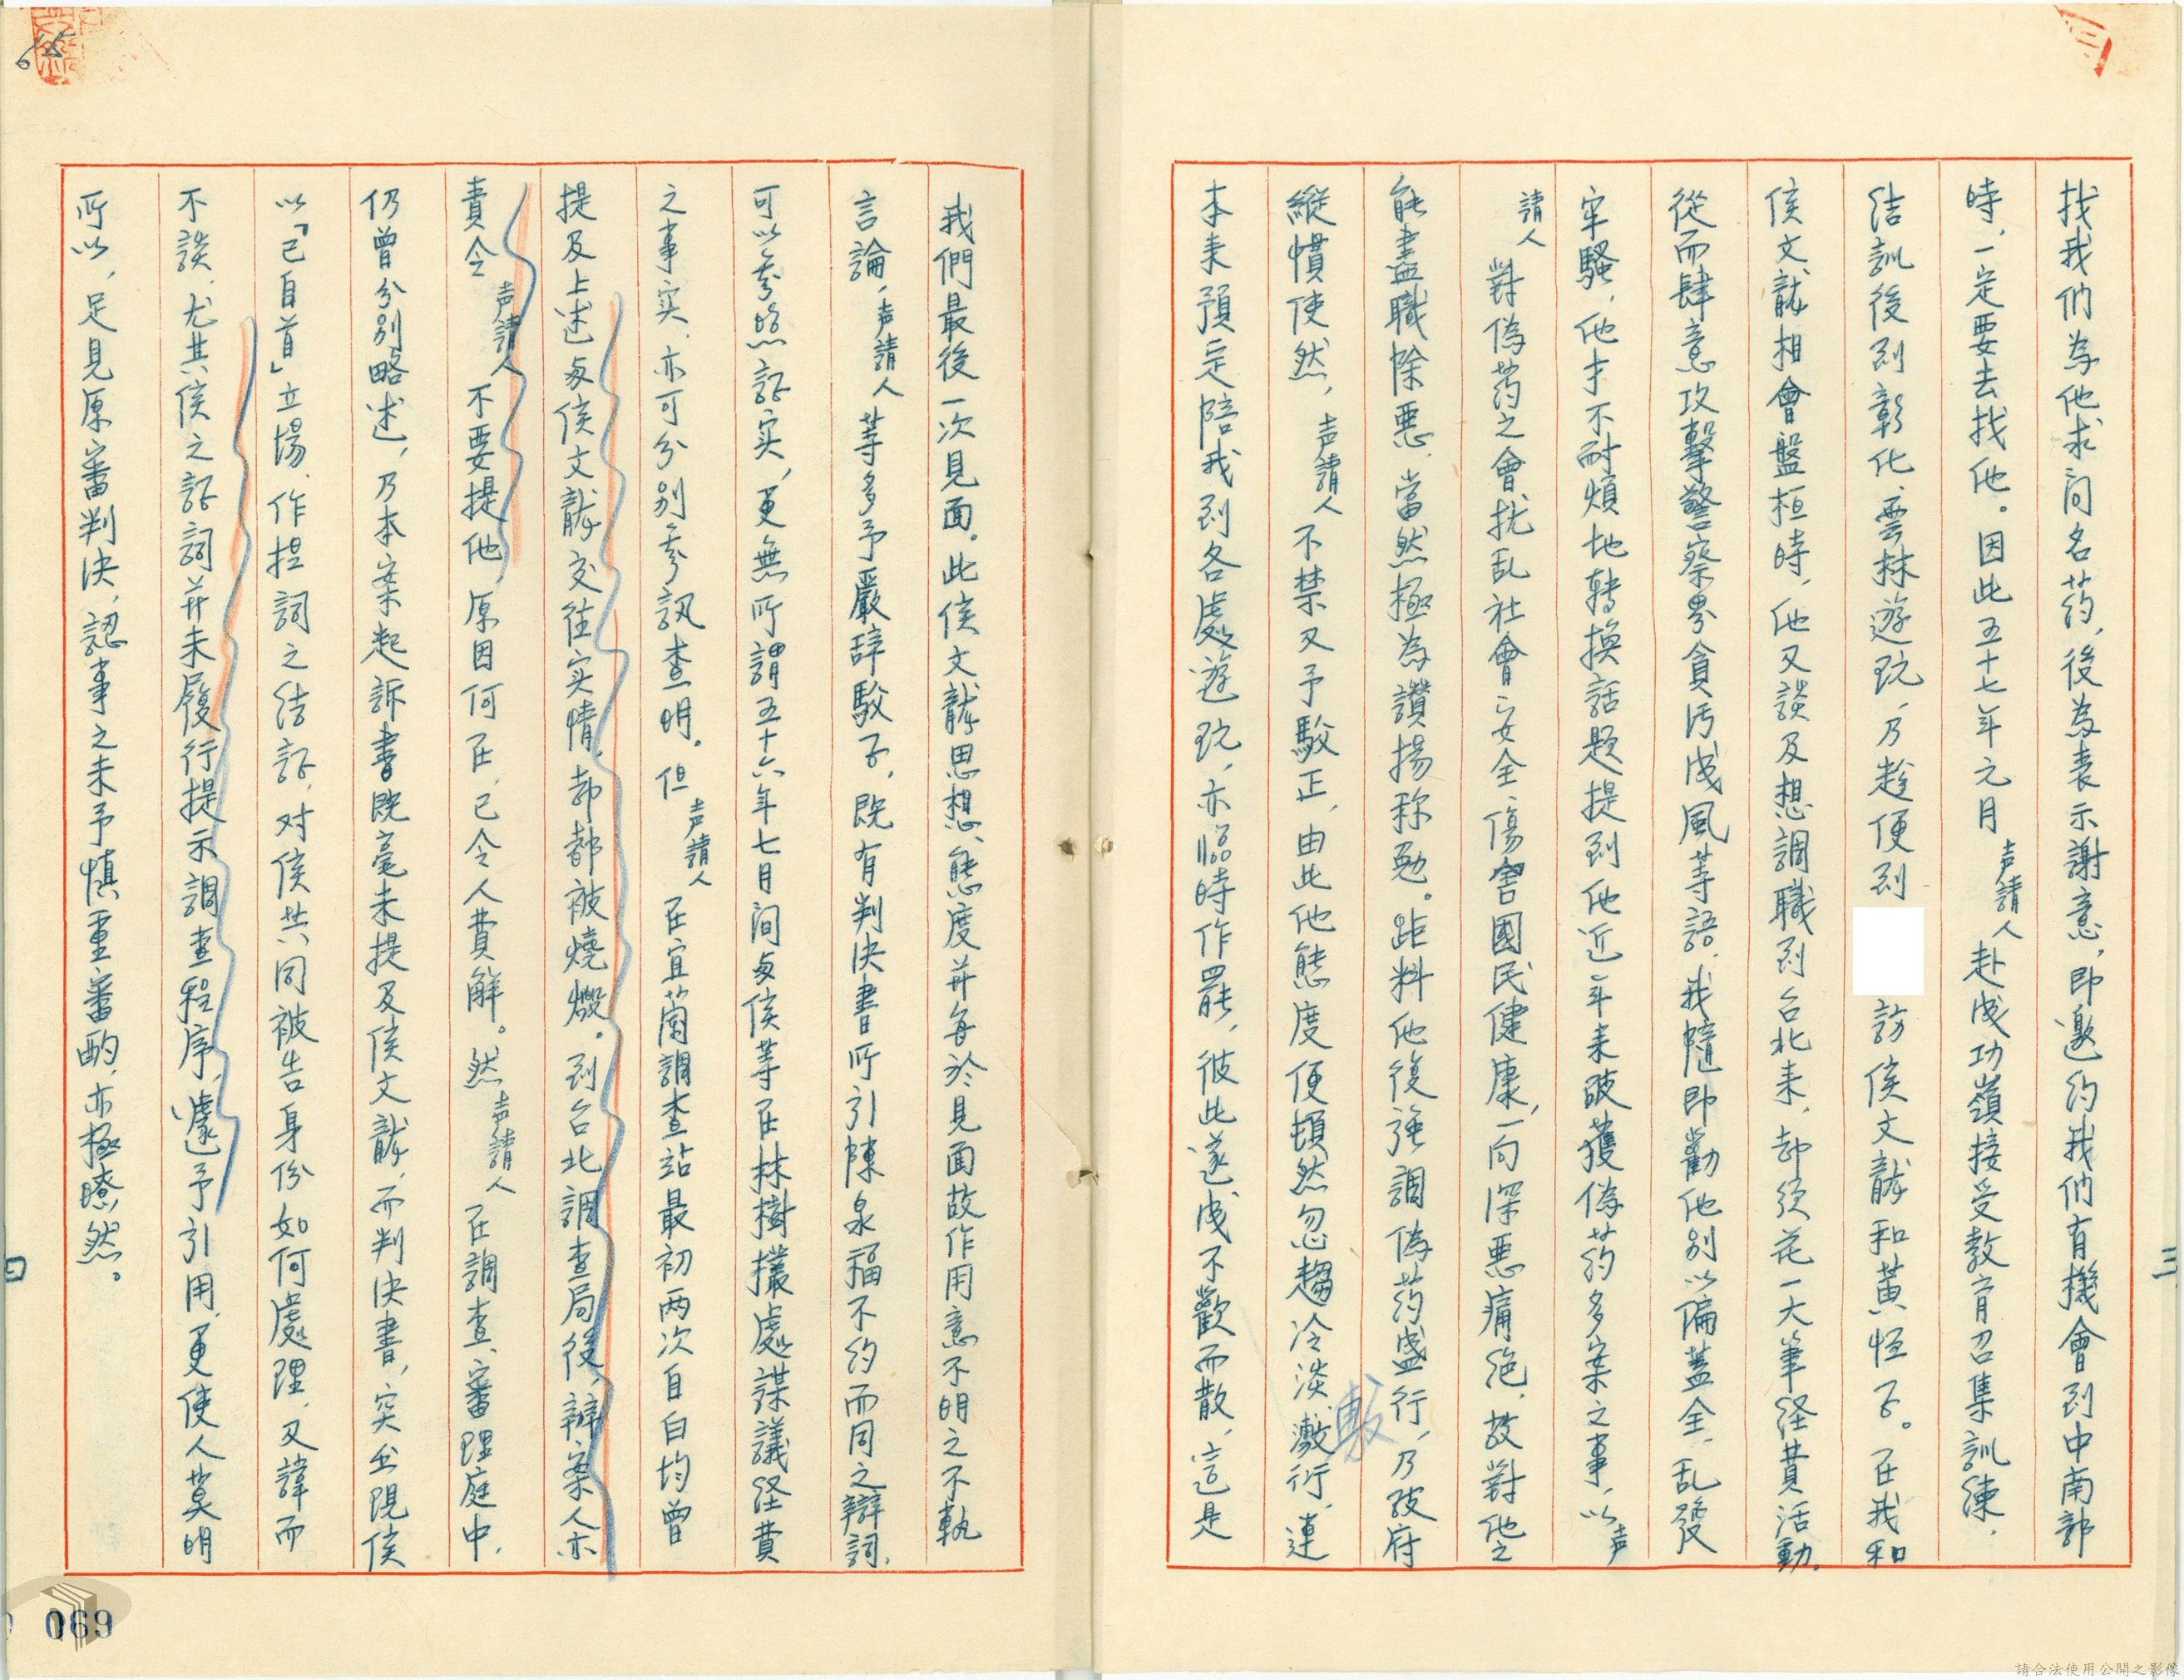 找我們為他求问名药，後為表示謝意，即邀约我们有機會到中南部
時，一定要去找他。因此五十七年元月声請人赴成功嶺接受教育召集訓練，
结訓後到彰化、雲林遊玩，乃趁便到
訪侯文龍和黃恒子。在我和
侯文龍相會盤桓時，他又談及想調職到台北来，却须花一大筆经費活動。
從而肆意攻擊警察界貪污成風等語，我隨即勸他别以偏蓋全，乱發
牢騷，他才不耐煩地轉換話題提到他近年来破獲偽药多案之事，以声
請人對偽药之會扰乱社會安全、傷害國民健康，一向深悪痛绝，故對他之
能盡職除悪，當然極為讚揚称勉。距料他後强調偽药盛行，乃政府
縱慣使然，声請人不禁又予駁正，由此他態度便頓然忽趨冷淡敷衍，連
敷
本来預定陪我到各處遊玩，亦臨時作罷，彼此遂成不歡而散，這是
三
我們最後一次見面。此侯文龍思想、態度并每於見面故作用意不明之不軌
言論，声請人等多予嚴辞駁斥，既有判决書所引陳泉福不约而同之辯詞，
可以参照証实，更無所謂五十六年七月间與侯等在林樹欉處謀議经費
之事实，亦可分别参訊查明。但声請人在宜蘭調查站最初两次自白均曾
提及上述與侯文龍交往实情，却都被燒燬。到台北調查局後，辦案人亦
責令声請人不要提他，原因何在，已令人費解。然声請人在調查、審理庭中，
仍曾分别略述，乃本案起訴書既毫未提及侯文龍，而判决書，突出現侯
以「已自首」立場，作担詞之结証，对侯共同被告身份如何處理，又諱而
不談，尤其侯之証詞并未履行提示調查程序，遽予引用，更使人莫明
所以，足見原審判决，認事之未予慎重審酌，亦極瞭然。
四
065
069
請合法使用公開之影像